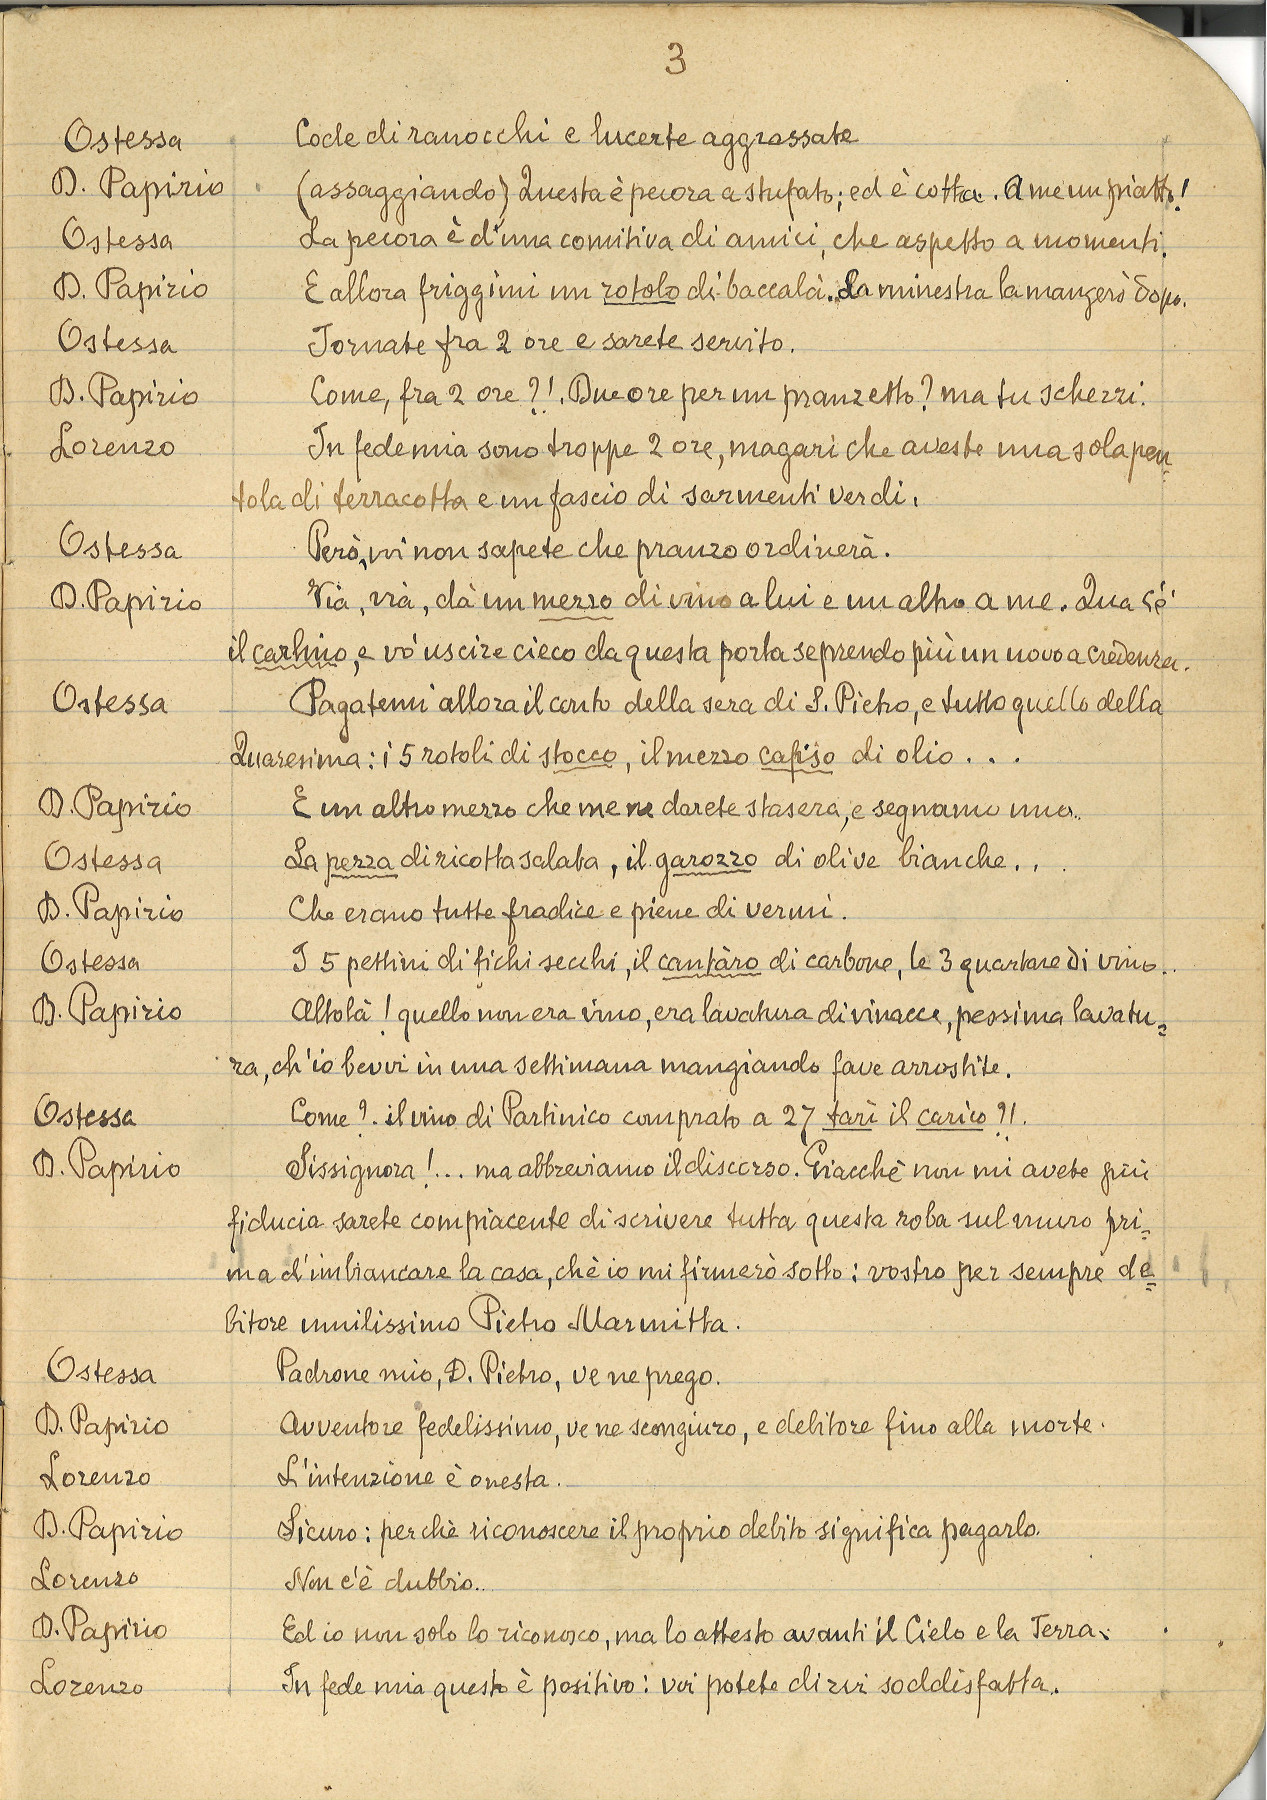 3
Ostessa Code di ranocchi e lucerte aggrassate
D. Papirio (assaggiando) Questa è pecora a stufato; ed è cotta. A me un piatto!
Ostessa La pecora è d'una comitiva di amici, che aspetto a momenti.
D. Papirio E allora friggimi un rotolo di baccalà. La minestra la mangerò dopo.
Ostessa Tornate fra 2 ore e sarete servito.
D. Papirio Come, fra 2 ore?!. Due ore per un pranzetto? ma tu scherzi.
Lorenzo In fede mia sono troppe 2 ore, magari che aveste una sola pen=
tola di terracotta e un fascio di sarmenti verdi.
Ostessa Però, voi non sapete che pranzo ordinerà.
D. Papirio Via, via, dà un mezzo di vino a lui e un altro a me. Qua c'é
il carlino, e vo' uscire cieco da questa porta se prendo più un novo a credenza.
Ostessa Pagatemi allora il conto della sera di S. Pietro, e tutto quello della
Quaresima: i 5 rotoli di stocco, il mezzo cafiso di olio...
D. Papirio E un altro mezzo che me ne darete stasera, e segnamo uno..
Ostessa La pezza di ricotta salata, il garozzo di olive bianche...
D. Papirio Che erano tutte fradice e piene di vermi.
Ostessa I 5 pettini di fichi secchi, il cantàro di carbone, le 3 quartare di vino..
D. Papirio Altolà! quello non era vino, era lavatura di vinacce, pessima lavatu=
ra, ch'io bevvi in una settimana mangiando fave arrostite.
Ostessa Come?. il vino di Partinico comprato a 27 tarì il carico?!.
D. Papirio Sissignora!... ma abbreviamo il discorso. Giacchè non mi avete più
fiducia sarete compiacente di scrivere tutta questa roba sul muro pri=
ma d'imbiancare la casa, chè io mi firmerò sotto: vostro per sempre de=
bitore umilissimo Pietro Marmitta.
Ostessa Padrone mio, D. Pietro, ve ne prego.
D. Papirio Avventore fedelissimo, ve ne scongiuro, e debitore fino alla morte.
Lorenzo L'intenzione è onesta.
D. Papirio Sicuro: perchè riconoscere il proprio debito significa pagarlo.
Lorenzo Non c'è dubbio..
D. Papirio Ed io non solo lo riconosco, ma lo attesto avanti il Cielo e la Terra.
Lorenzo In fede mia questo è positivo: voi potete dirvi soddisfatta.